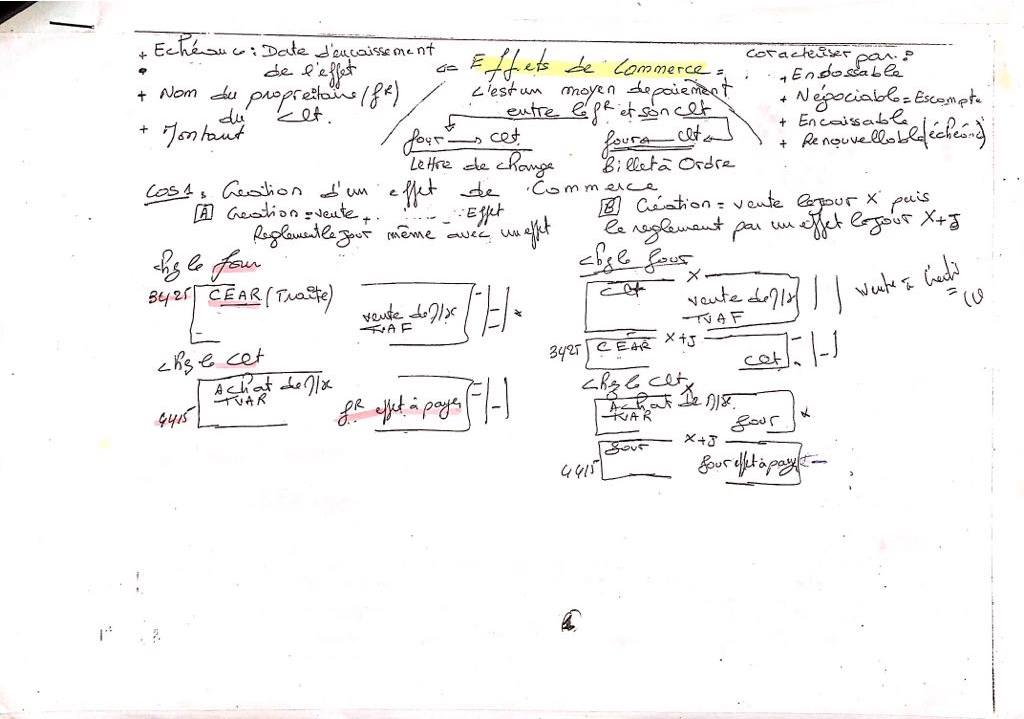 + Echéance : Date d'encaissement
de l'effet
+ Nom du propriétaire (fR)
du Clt.
+ Montant
Effets de Commerce =
c'est un moyen de paiement
entre le fR et son clt
four → clt
Lettre de change
four clt
Billet à Ordre
caractériser par :
+ Endossable
+ Négociable = Escompte
+ Encaissable
+ Renouvellable (échéance)
Cas 1 : Création d'un effet de Commerce
A Création = vente + Effet
Reglement le jour même avec un effet
chez le four
3425 CEAR (Traite)
vente de M/se
TVAF
chez le clt
Achat de M/se
TVAR
4415 fR effet à payer
B Création = vente le jour X puis
le reglement par un effet le jour X+J
chez le four
X
Clt
vente de M/se
TVAF
vente à Crédit
X+J
3425 CEAR
Clt
chez le Clt
X
Achat De M/se.
TVAR
four
X+J
four
4415 four effet à payer